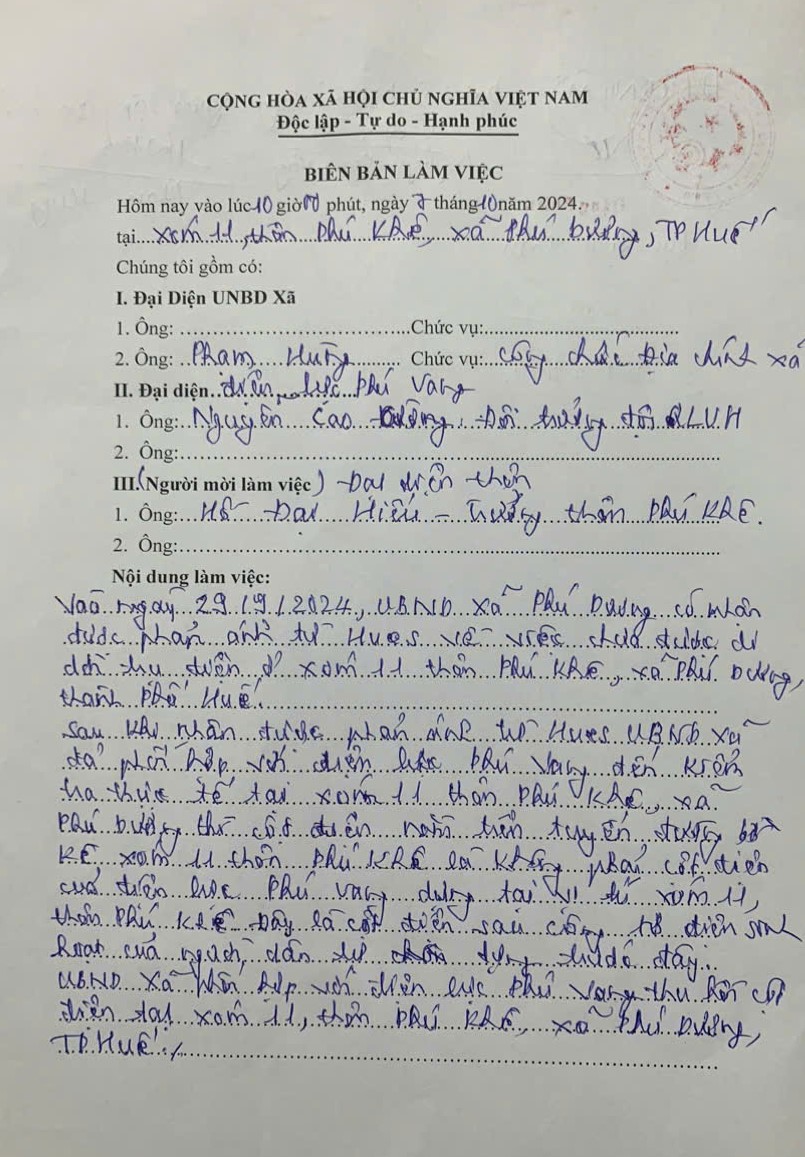 CỘNG HÒA XÃ HỘI CHỦ NGHĨA VIỆT NAM
Độc lập - Tự do - Hạnh phúc
BIÊN BẢN LÀM VIỆC
Hôm nay vào lúc 10 giờ 00 phút, ngày 7 tháng 10 năm 2024.
tại xóm 11, thôn Phú Khê, xã Phú Dương, TP Huế
Chúng tôi gồm có:
I. Đại Diện UNBD Xã
1. Ông: ........ Chức vụ: ........
2. Ông: Phạm Hưng Chức vụ: công chức Địa chính xã
II. Đại diện điện lực Phú Vang
1. Ông: Nguyễn Cao Cường, Đội trưởng đội QLVH
2. Ông: ........
III. (Người mời làm việc) Đại diện thôn
1. Ông: Hồ Đại Hiếu - Trưởng thôn Phú Khê.
2. Ông: ........
Nội dung làm việc:
Vào ngày 29/9/2024, UBND xã Phú Dương có nhận
được phản ánh từ Hues về việc chưa được di
dời trụ điện ở xóm 11 thôn Phú Khê, xã Phú Dương,
thành Phố Huế.
Sau khi nhận được phản ánh từ Hues UBND xã
đã phối hợp với điện lực Phú Vang đến kiểm
tra thực tế tại xóm 11 thôn Phú Khê, xã
Phú Dương thì cột điện nằm trên tuyến đường bờ
Kè xóm 11 thôn Phú Khê là không phải cột điện
của điện lực Phú Vang dựng tại vị trí xóm 11,
thôn Phú Khê Đây là cột điện sau công tơ điện sinh
hoạt của người dân tự dựng trước đây.
UBND xã phối hợp với điện lực Phú Vang thu hồi cột
điện tại xóm 11, thôn Phú Khê, xã Phú Dương,
TP Huế ./.